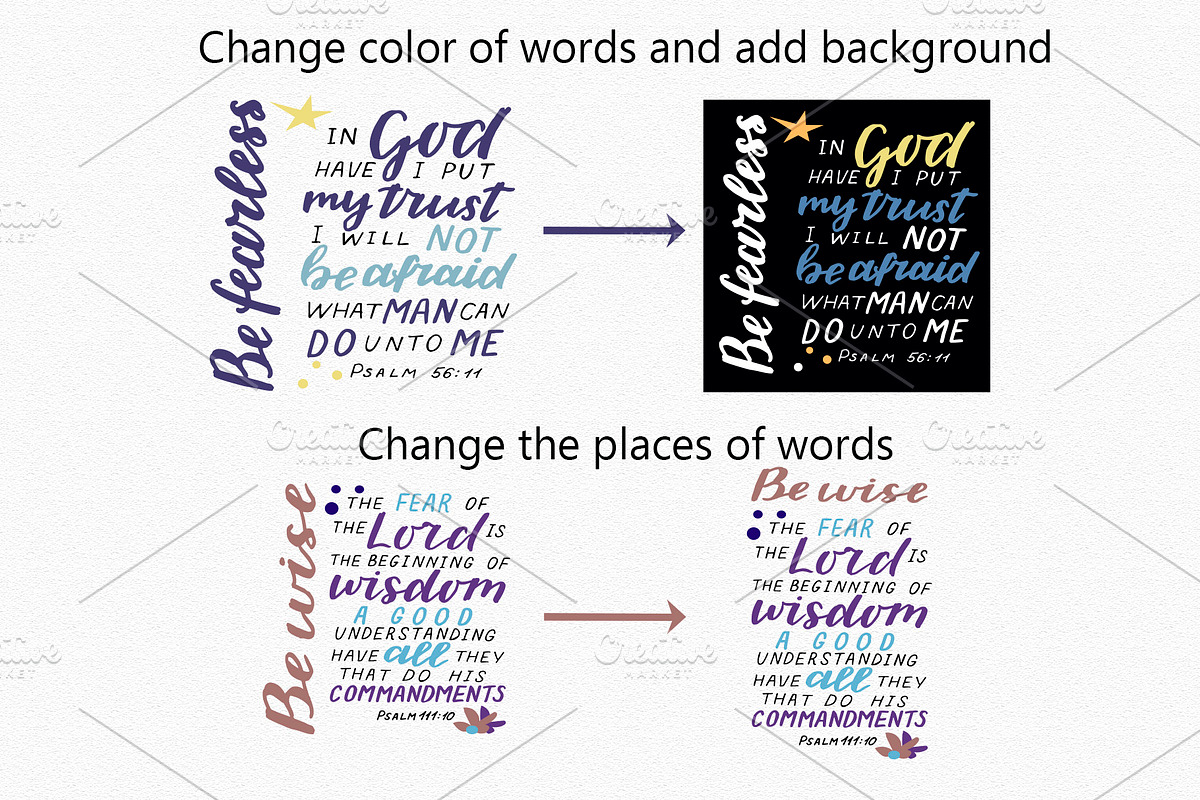 Change color of words and add background
Be fearless
IN God
HAVE I PUT
my trust
I WILL NOT
be afraid
WHAT MAN CAN
DO UNTO ME
PSALM 56:11
Be fearless
IN God
HAVE I PUT
my trust
I WILL NOT
be afraid
WHAT MAN CAN
DO UNTO ME
PSALM 56:11
Change the places of words
Be wise
THE FEAR OF
THE Lord IS
THE BEGINNING OF
wisdom
A GOOD
UNDERSTANDING
HAVE all THEY
THAT DO HIS
COMMANDMENTS
PSALM 111:10
Be wise
THE FEAR OF
THE Lord IS
THE BEGINNING OF
wisdom
A GOOD
UNDERSTANDING
HAVE all THEY
THAT DO HIS
COMMANDMENTS
PSALM 111:10
Creative
MARKET
Creative
MARKET
Creative
MARKET
Creative
MARKET
Creative
MARKET
Creative
MARKET
Creative
MARKET
Creative
MARKET